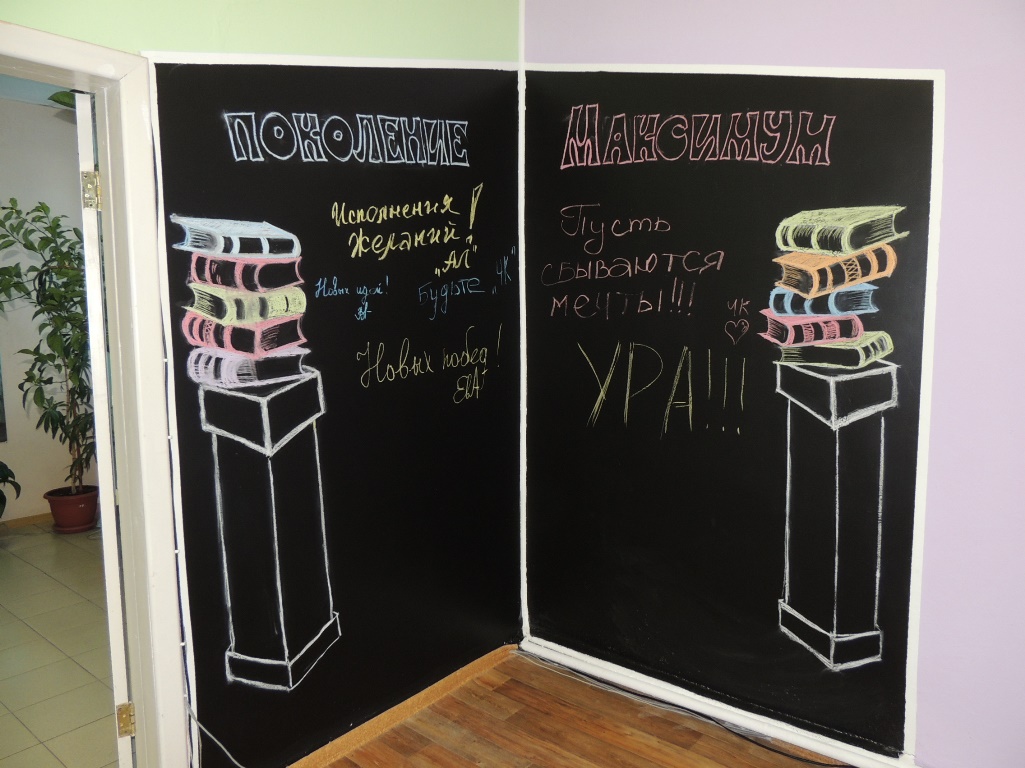 ПОКОЛЕНИЕ
Исполнения
желаний!
"АЛ"
Новых идей!
Будьте "ЧК"
Новых побед!
Максимум
Пусть
сбываются
мечты!!!
ЧК
УРА!!!